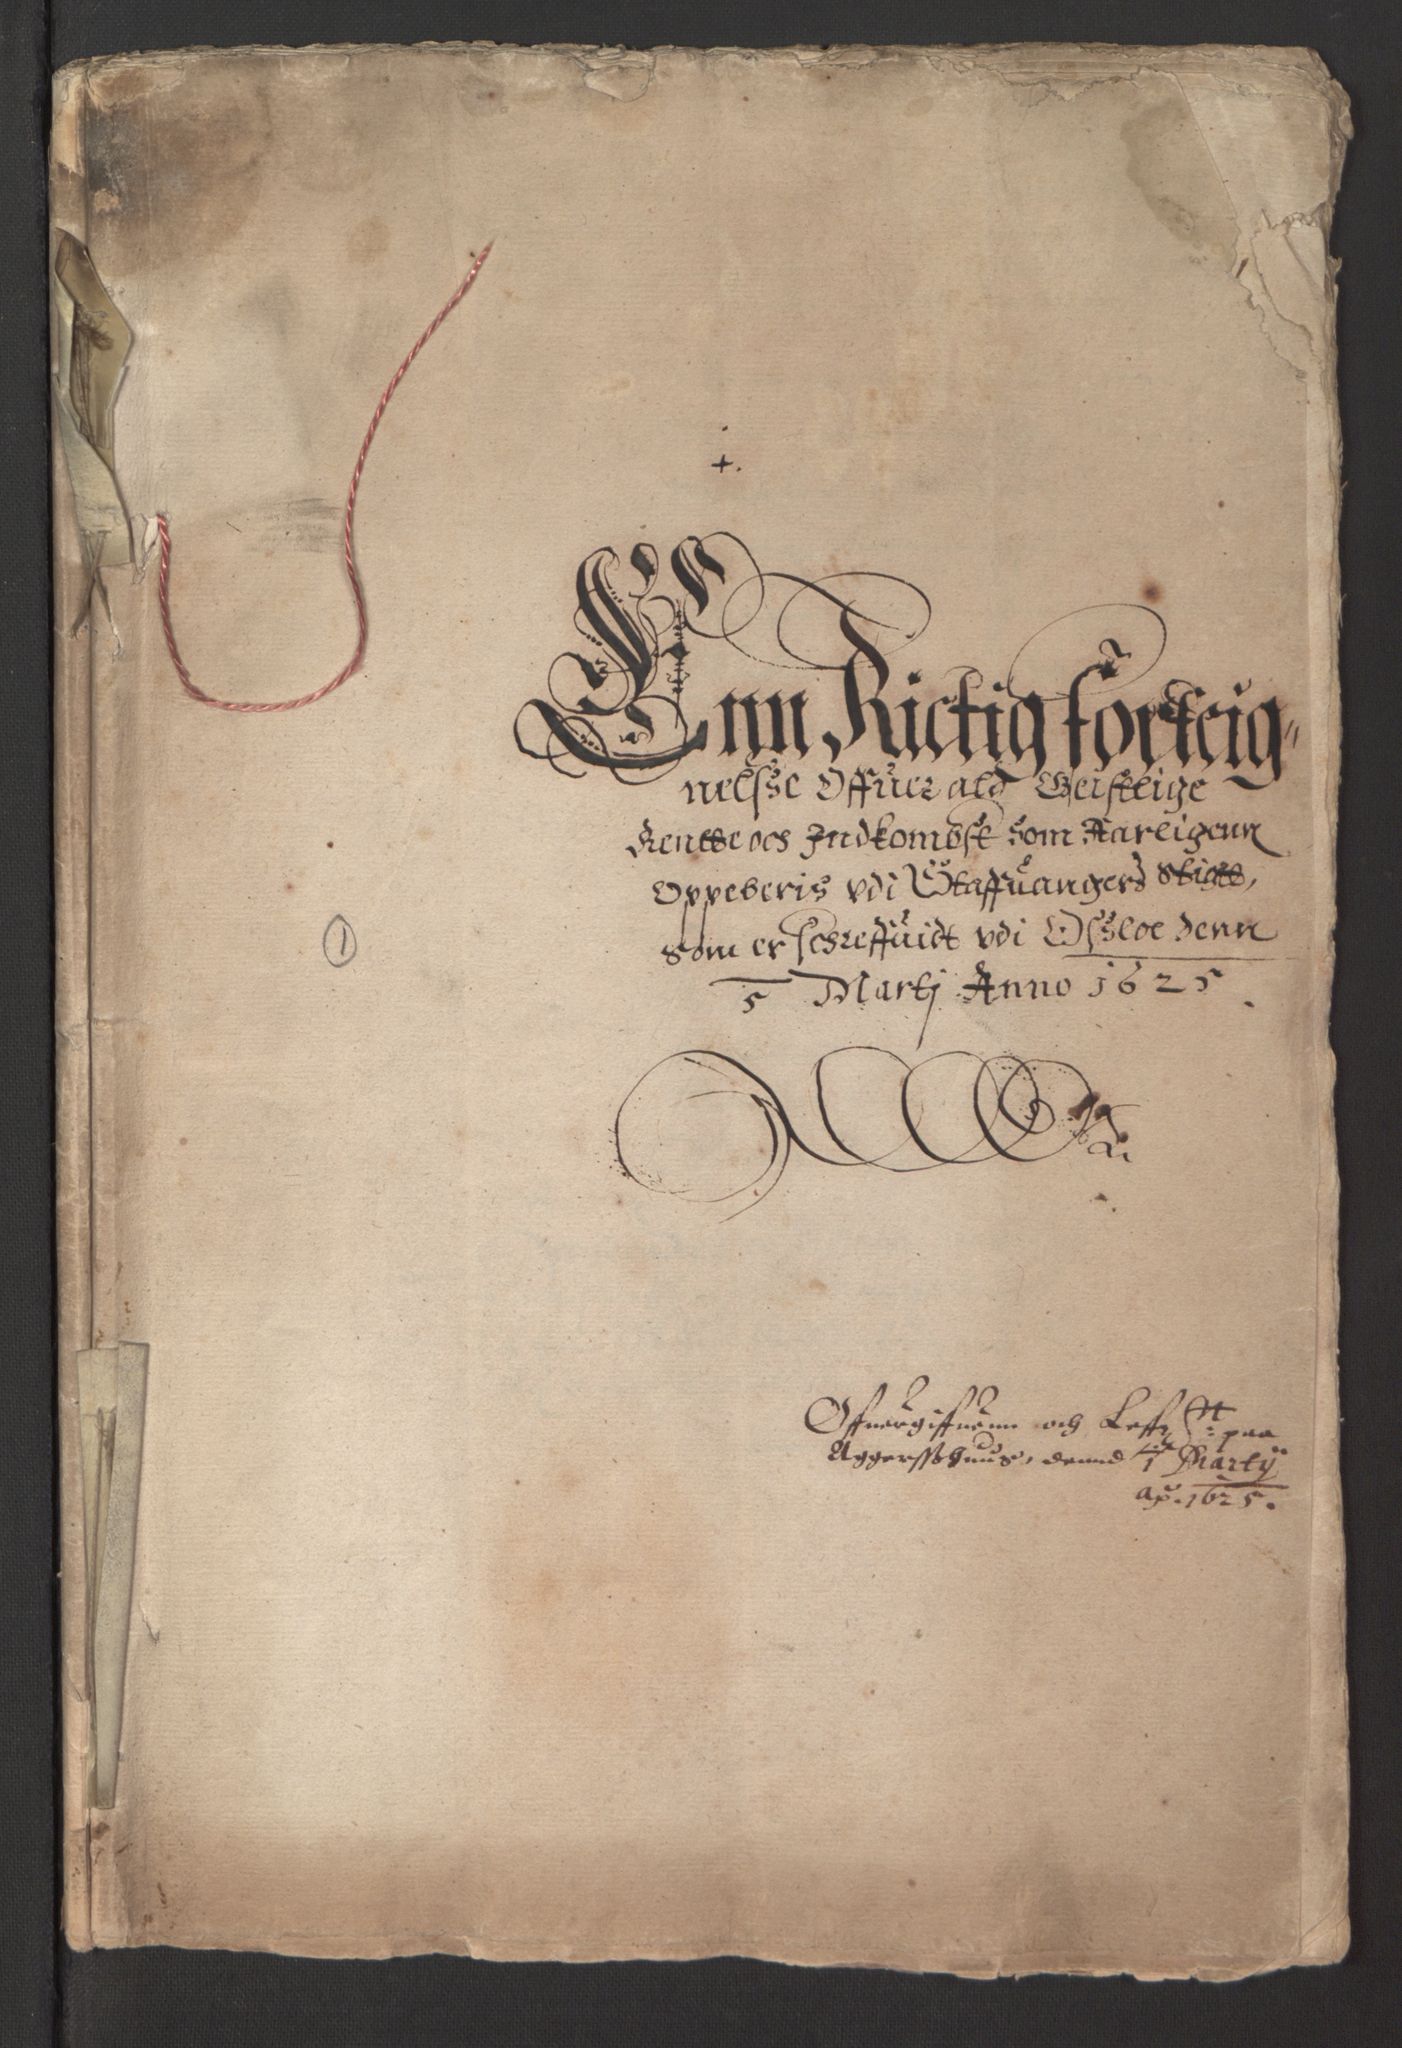 +.
Enn Rictig forteig-
nelsse Offuer ald Geistlige
Rentte och Indkombst som Aarligenn
Oppeberis vdi Staffuangers Stigtt,
som er schreffuidt vdi Opsloe denn
5 Martj Anno 1625.
1
Offuergiffuenn och Leff: paa
Aggersshuus, dennd Martij
ao. 1625.